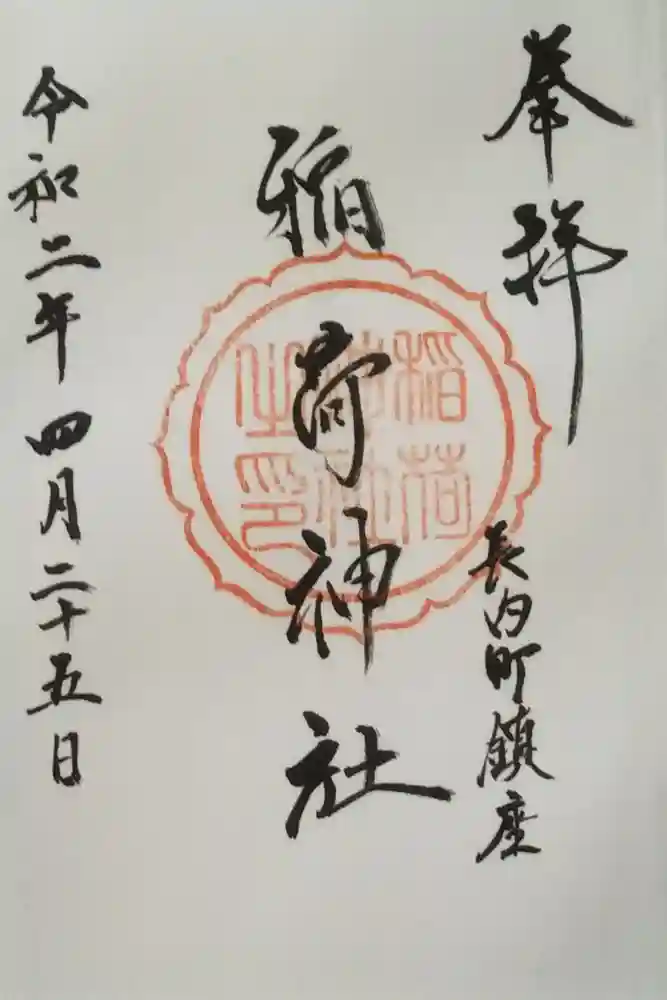 奉拝
長内町鎮座
稲荷神社
稲荷
神社
之印
令和二年四月二十五日